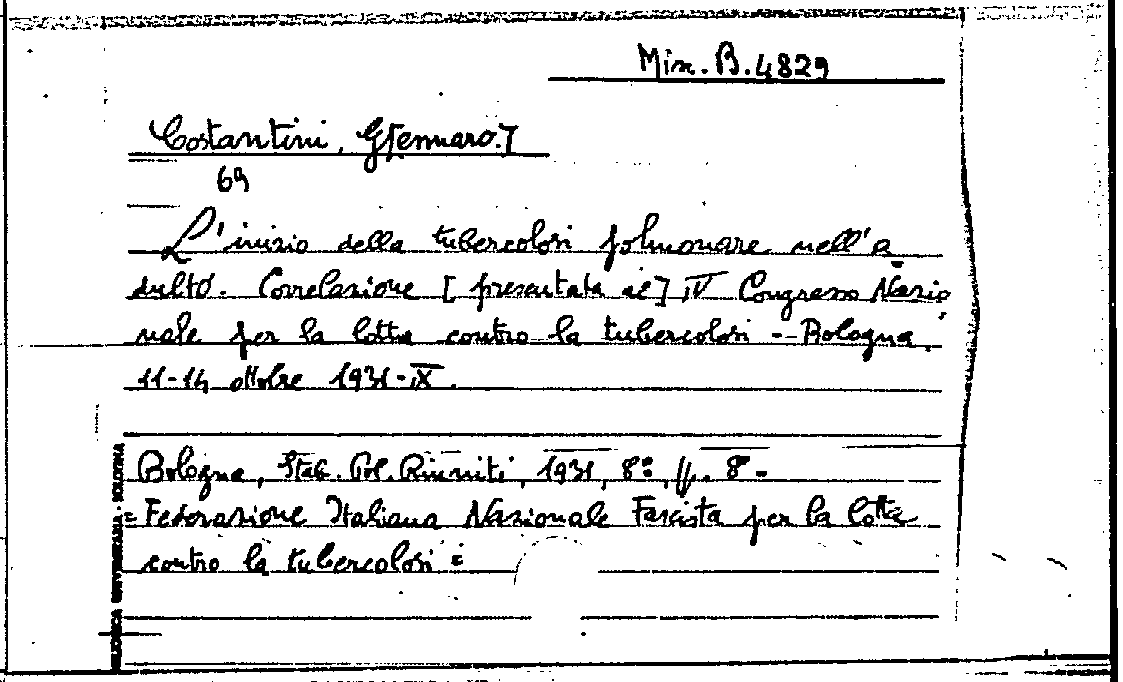 Min. B. 4829
Costantini, G[ennaro.]
69
L'inizio della tubercolosi polmonare nell'a
dulto. Correlazione [presentata al] IV Congresso Nazio
nale per la lotta contro la tubercolosi -- Bologna,
11-14 ottobre 1931-IX.
Bologna, Stab. Pol. Riuniti, 1931, 8º, pp. 8 -
= Federazione Italiana Nazionale Fascista per la lotta
contro la tubercolosi =
BIBLIOTECA UNIVERSITARIA - BOLOGNA